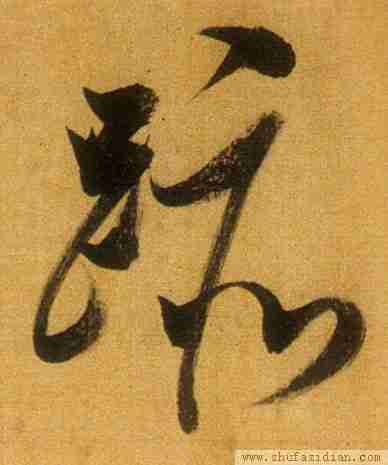 跡
www.shufazidian.com